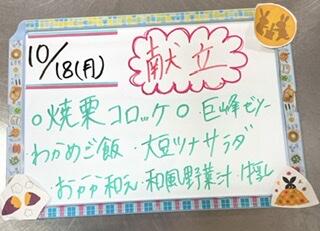 10/18(月)
献立
○焼栗コロッケ○・巨峰ゼリー
わかめご飯・大豆ツナサラダ
・おかか和え・和風野菜汁・牛乳